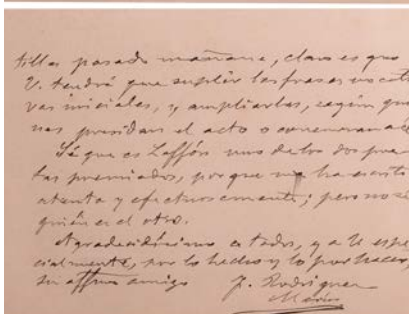 tillas pasado mañana, claro es que
V. tendrá que suplir las frases vocati
vas iniciales, y ampliarlas, según que
nes presidan el acto o
Sé que es Laffón uno de los dos poe
tas premiados, porque me ha escrito
atenta y efectuosamente; pero no sé
quién es el otro.
Agradecidísimo a todos, y a V. espe
cialmente, por lo hecho y lo por hacer,
su affmo amigo J. Rodríguez
Marín